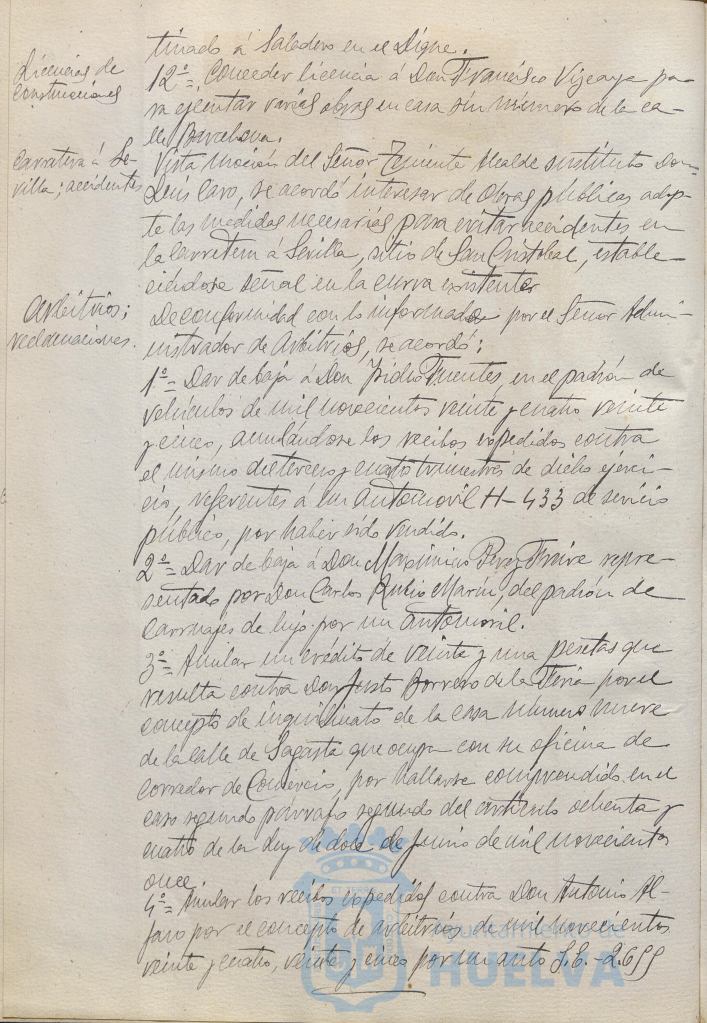 tinado á Saladero en el Dique.
Licencias de
construcciones
12º = Conceder licencia á Don Francisco Vizcaya pa-
ra ejecutar varias obras en casa sin número de la ca-
lle Barcelona.
Carretera á Se-
villa; accidentes
Vista moción del Señor Teniente Alcalde sustituto Don
Luis Caro, se acordó interesar de Obras públicas adop-
te las medidas necesarias para evitar accidentes en
la carretera á Sevilla, sitio de San Cristobal, estable-
ciéndose señal en la curva existente.
Arbitrios;
reclamaciones.
De conformidad con lo informado por el Señor Admi-
nistrador de Arbitrios, se acordó:
1º = Dar de baja á Don Isidro Fuentes, en el padrón de
vehículos de mil novecientos veinte y cuatro veinte
y cinco, anulándose los recibos expedidos contra
el mismo del tercero y cuarto trimestres de dicho ejerci-
cio, referentes á un automovil H-433 de servicio
público, por haber sido vendido.
2º = Dar de baja á Don Maximinio Perez Freire repre-
sentado por Don Carlos Rubio Marín, del padrón de
carruajes de lujo por un automovil.
3º = Anular un crédito de veinte y una pesetas que
resulta contra Don Justo Borrero de la Feria por el
concepto de inquilinato de la casa número nueve
de la calle de Sagasta que ocupa con su oficina de
Corredor de Comercio, por hallarse comprendido en el
caso segundo párrafo segundo del artículo ochenta y
cuatro de la Ley de doce de Junio de mil novecientos
once.
4º = Anular los recibos expedidos contra Don Antonio Al-
faro por el concepto de arbitrios de mil novecientos
veinte y cuatro, veinte y cinco por un auto S.E.-2.655
HUELVA